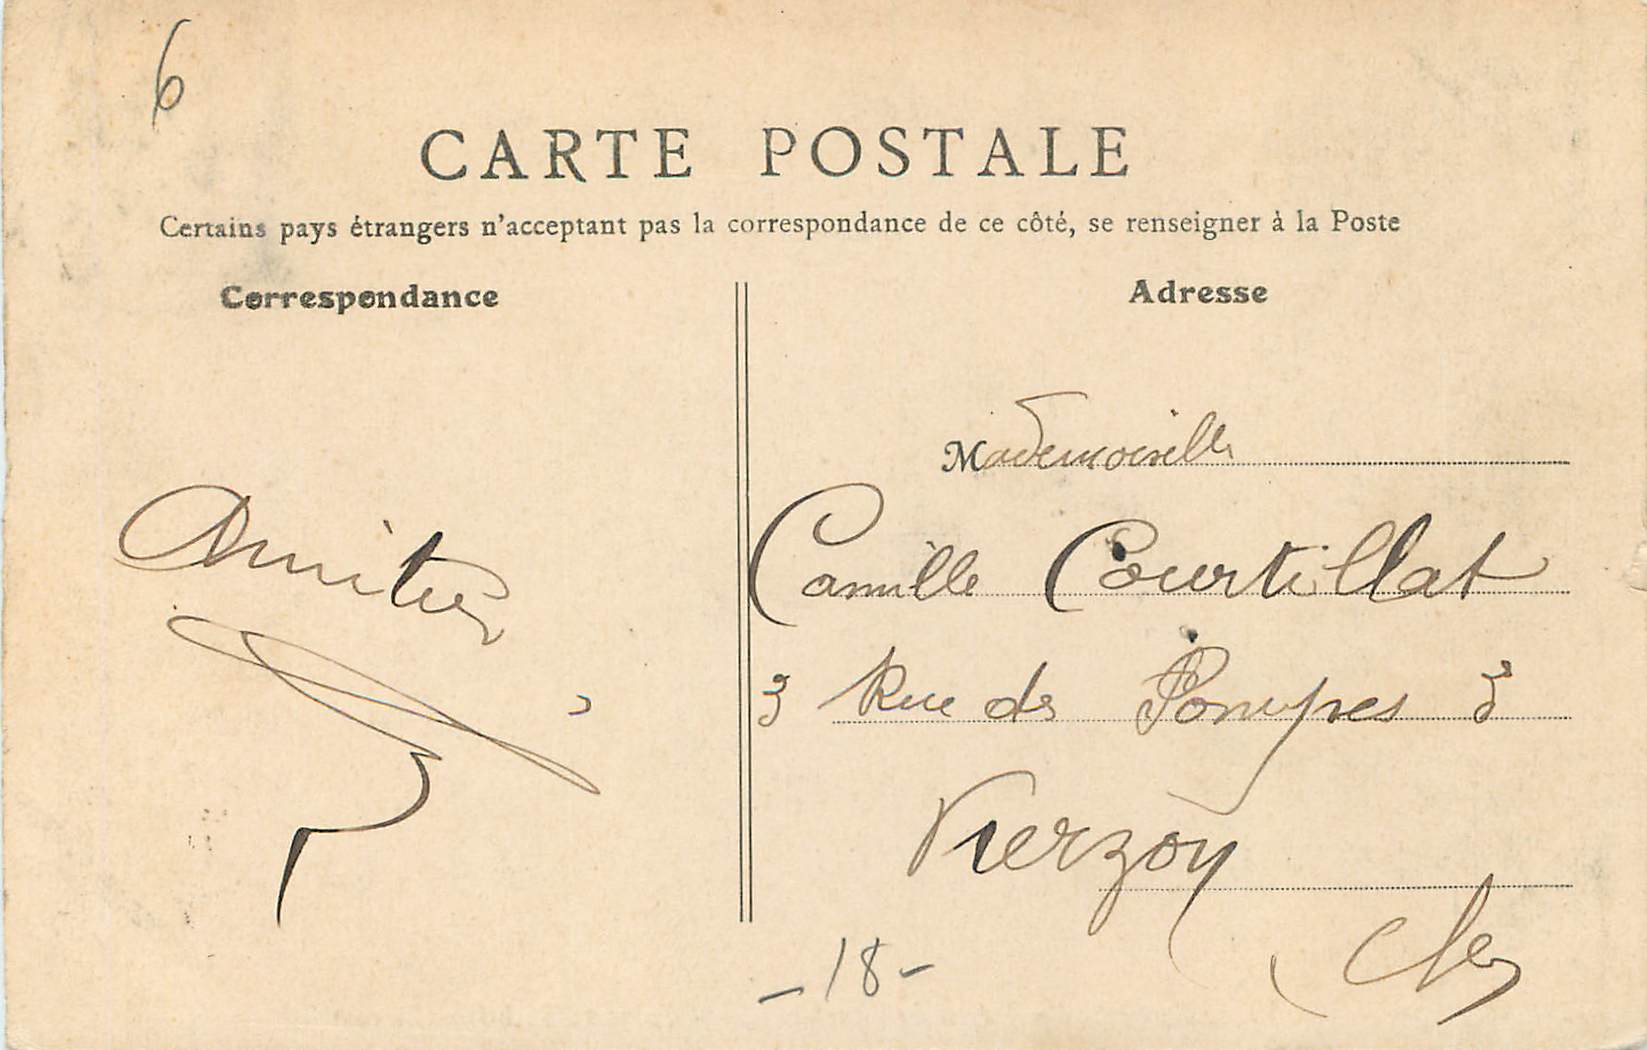 6
CARTE POSTALE
Certains pays étrangers n'acceptant pas la correspondance de ce côté, se renseigner à la Poste
Correspondance
Amitiés
Adresse
Mademoiselle
Camille Courtillat
3 Rue des Pompes 3
Vierzon
Cher
-18-